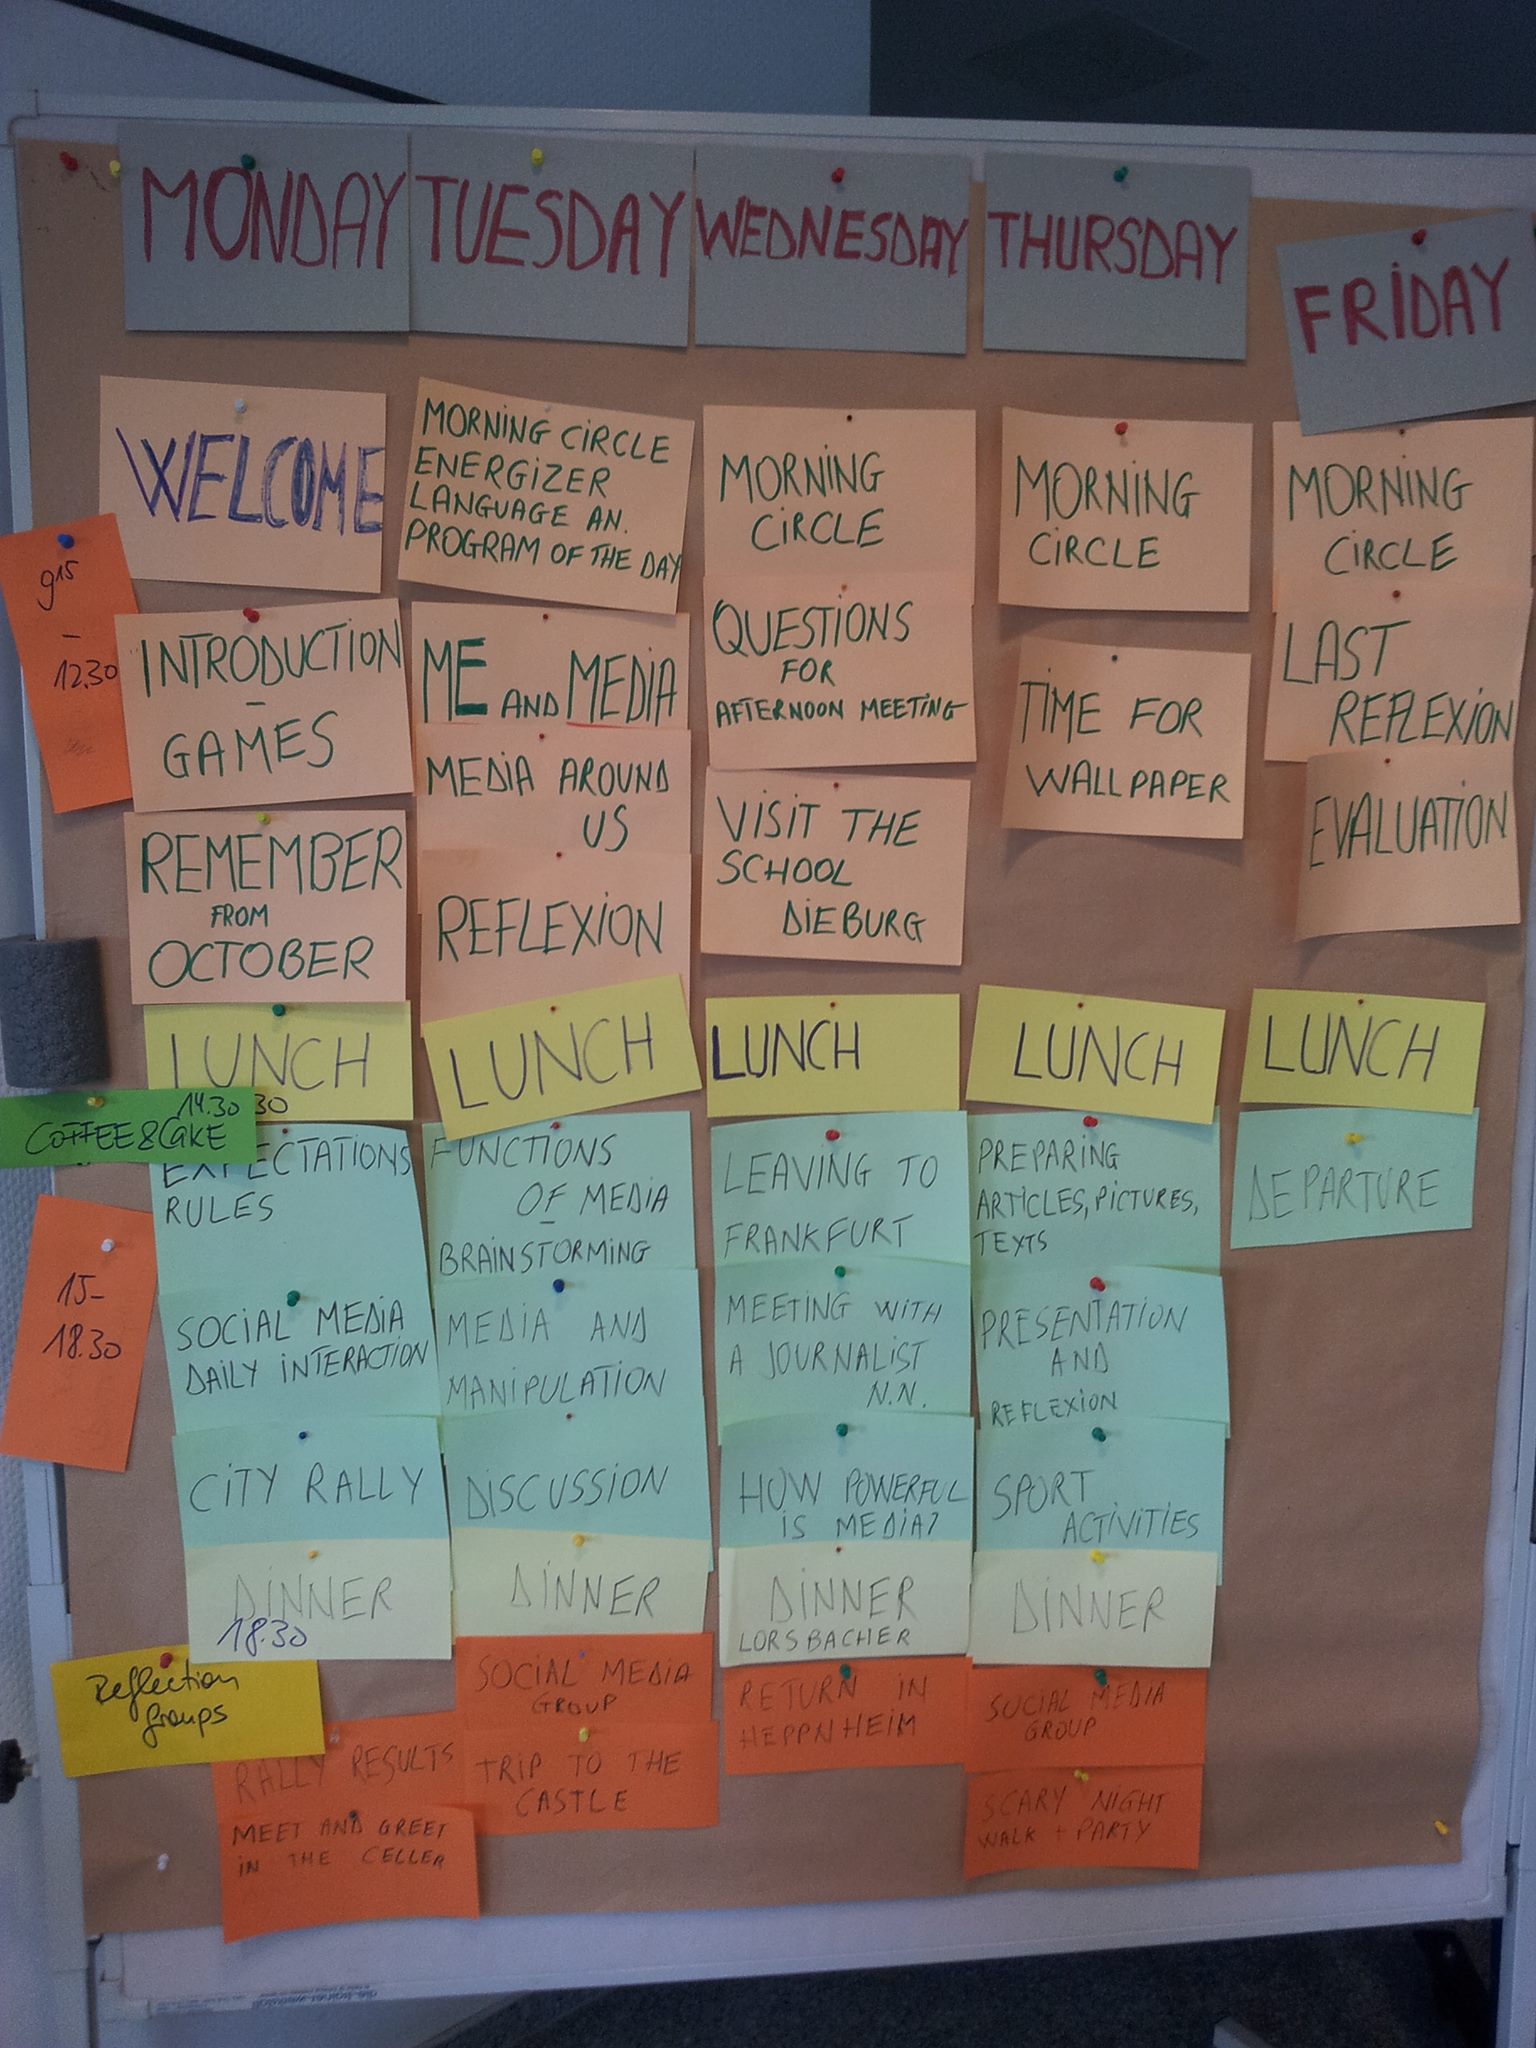 MONDAY
TUESDAY
WEDNESDAY
THURSDAY
FRIDAY
9 15
-
12.30
WELCOME
INTRODUCTION
-
GAMES
REMEMBER
FROM
OCTOBER
LUNCH
30
14.30
COFFEE & CAKE
EXPECTATIONS
RULES
15-
18.30
SOCIAL MEDIA
DAILY INTERACTION
CITY RALLY
DINNER
18.30
Reflection
groups
RALLY RESULTS
MEET AND GREET
IN THE CELLER
MORNING CIRCLE
ENERGIZER
LANGUAGE AN.
PROGRAM OF THE DAY
ME AND MEDIA
MEDIA AROUND
US
REFLEXION
LUNCH
FUNCTIONS
OF MEDIA
BRAINSTORMING
MEDIA AND
MANIPULATION
DISCUSSION
DINNER
SOCIAL MEDIA
GROUP
TRIP TO THE
CASTLE
MORNING
CIRCLE
QUESTIONS
FOR
AFTERNOON MEETING
VISIT THE
SCHOOL
DIEBURG
LUNCH
LEAVING TO
FRANKFURT
MEETING WITH
A JOURNALIST
N.N.
HOW POWERFUL
IS MEDIA?
DINNER
LORSBACHER
RETURN IN
HEPPNHEIM
MORNING
CIRCLE
TIME FOR
WALLPAPER
LUNCH
PREPARING
ARTICLES, PICTURES,
TEXTS
PRESENTATION
AND
REFLEXION
SPORT
ACTIVITIES
DINNER
SOCIAL MEDIA
GROUP
SCARY NIGHT
WALK + PARTY
MORNING
CIRCLE
LAST
REFLEXION
EVALUATION
LUNCH
DEPARTURE